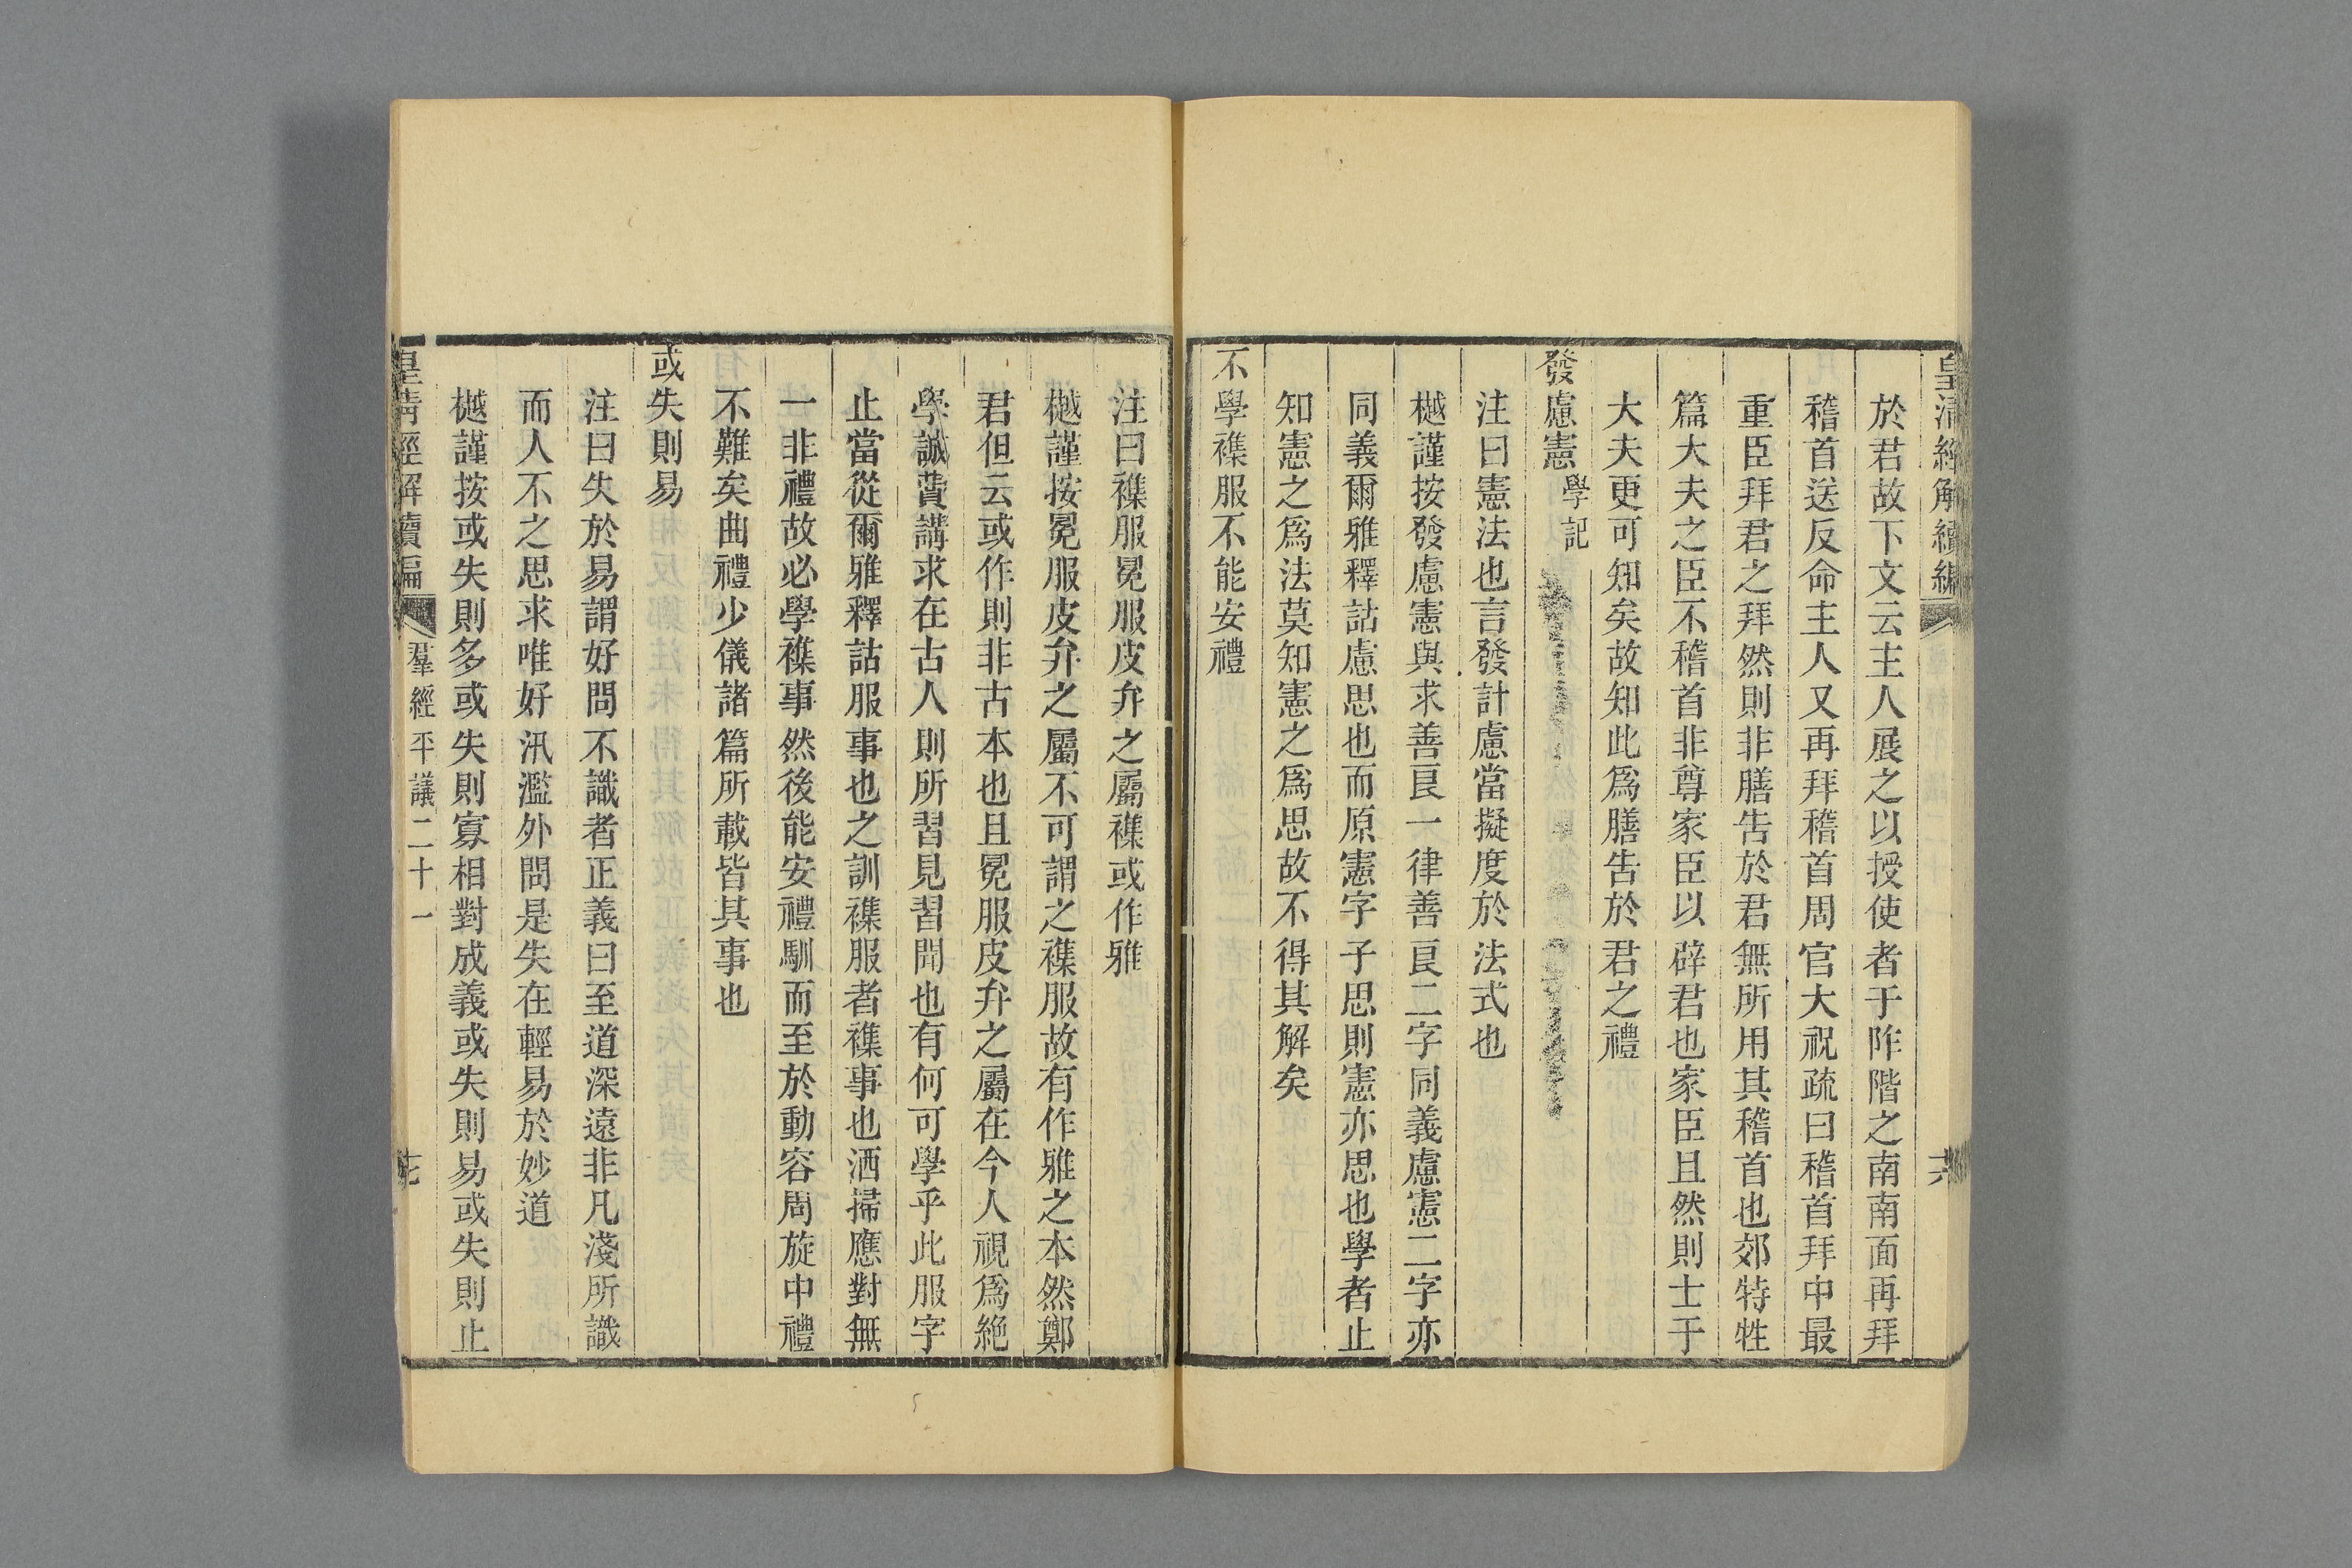 皇清經解續編
六
於君故下文云主人展之以授使者于阼階之南南面再拜
稽首送反命主人又再拜稽首周官大祝疏曰稽首拜中最
重臣拜君之拜然則非膳告於君無所用其稽首也郊特牲
篇大夫之臣不稽首非尊家臣以辟君也家臣且然則士于
大夫更可知矣故知此爲膳告於君之禮
發慮憲學記
注曰憲法也言發計慮當擬度於法式也
樾謹按發慮憲與求善良一律善良二字同義慮憲二字亦
同義爾雅釋詁慮思也而原憲字子思則憲亦思也學者止
知憲之爲法莫知憲之爲思故不得其解矣
不學襍服不能安禮
注曰襍服冕服皮弁之屬襍或作雅
樾謹按冕服皮弁之屬不可謂之襍服故有作雅之本然鄭
君但云或作則非古本也且冕服皮弁之屬在今人視爲絶
學誠費講求在古人則所習見習聞也有何可學乎此服字
止當從爾雅釋詁服事也之訓襍服者襍事也洒掃應對無
一非禮故必學襍事然後能安禮馴而至於動容周旋中禮
不難矣曲禮少儀諸篇所載皆其事也
或失則易
注曰失於易謂好問不識者正義曰至道深遠非凡淺所識
而人不之思求唯好汎濫外問是失在輕易於妙道
樾謹按或失則多或失則寡相對成義或失則易或失則止
皇清經解續編
羣經平議二十一
七